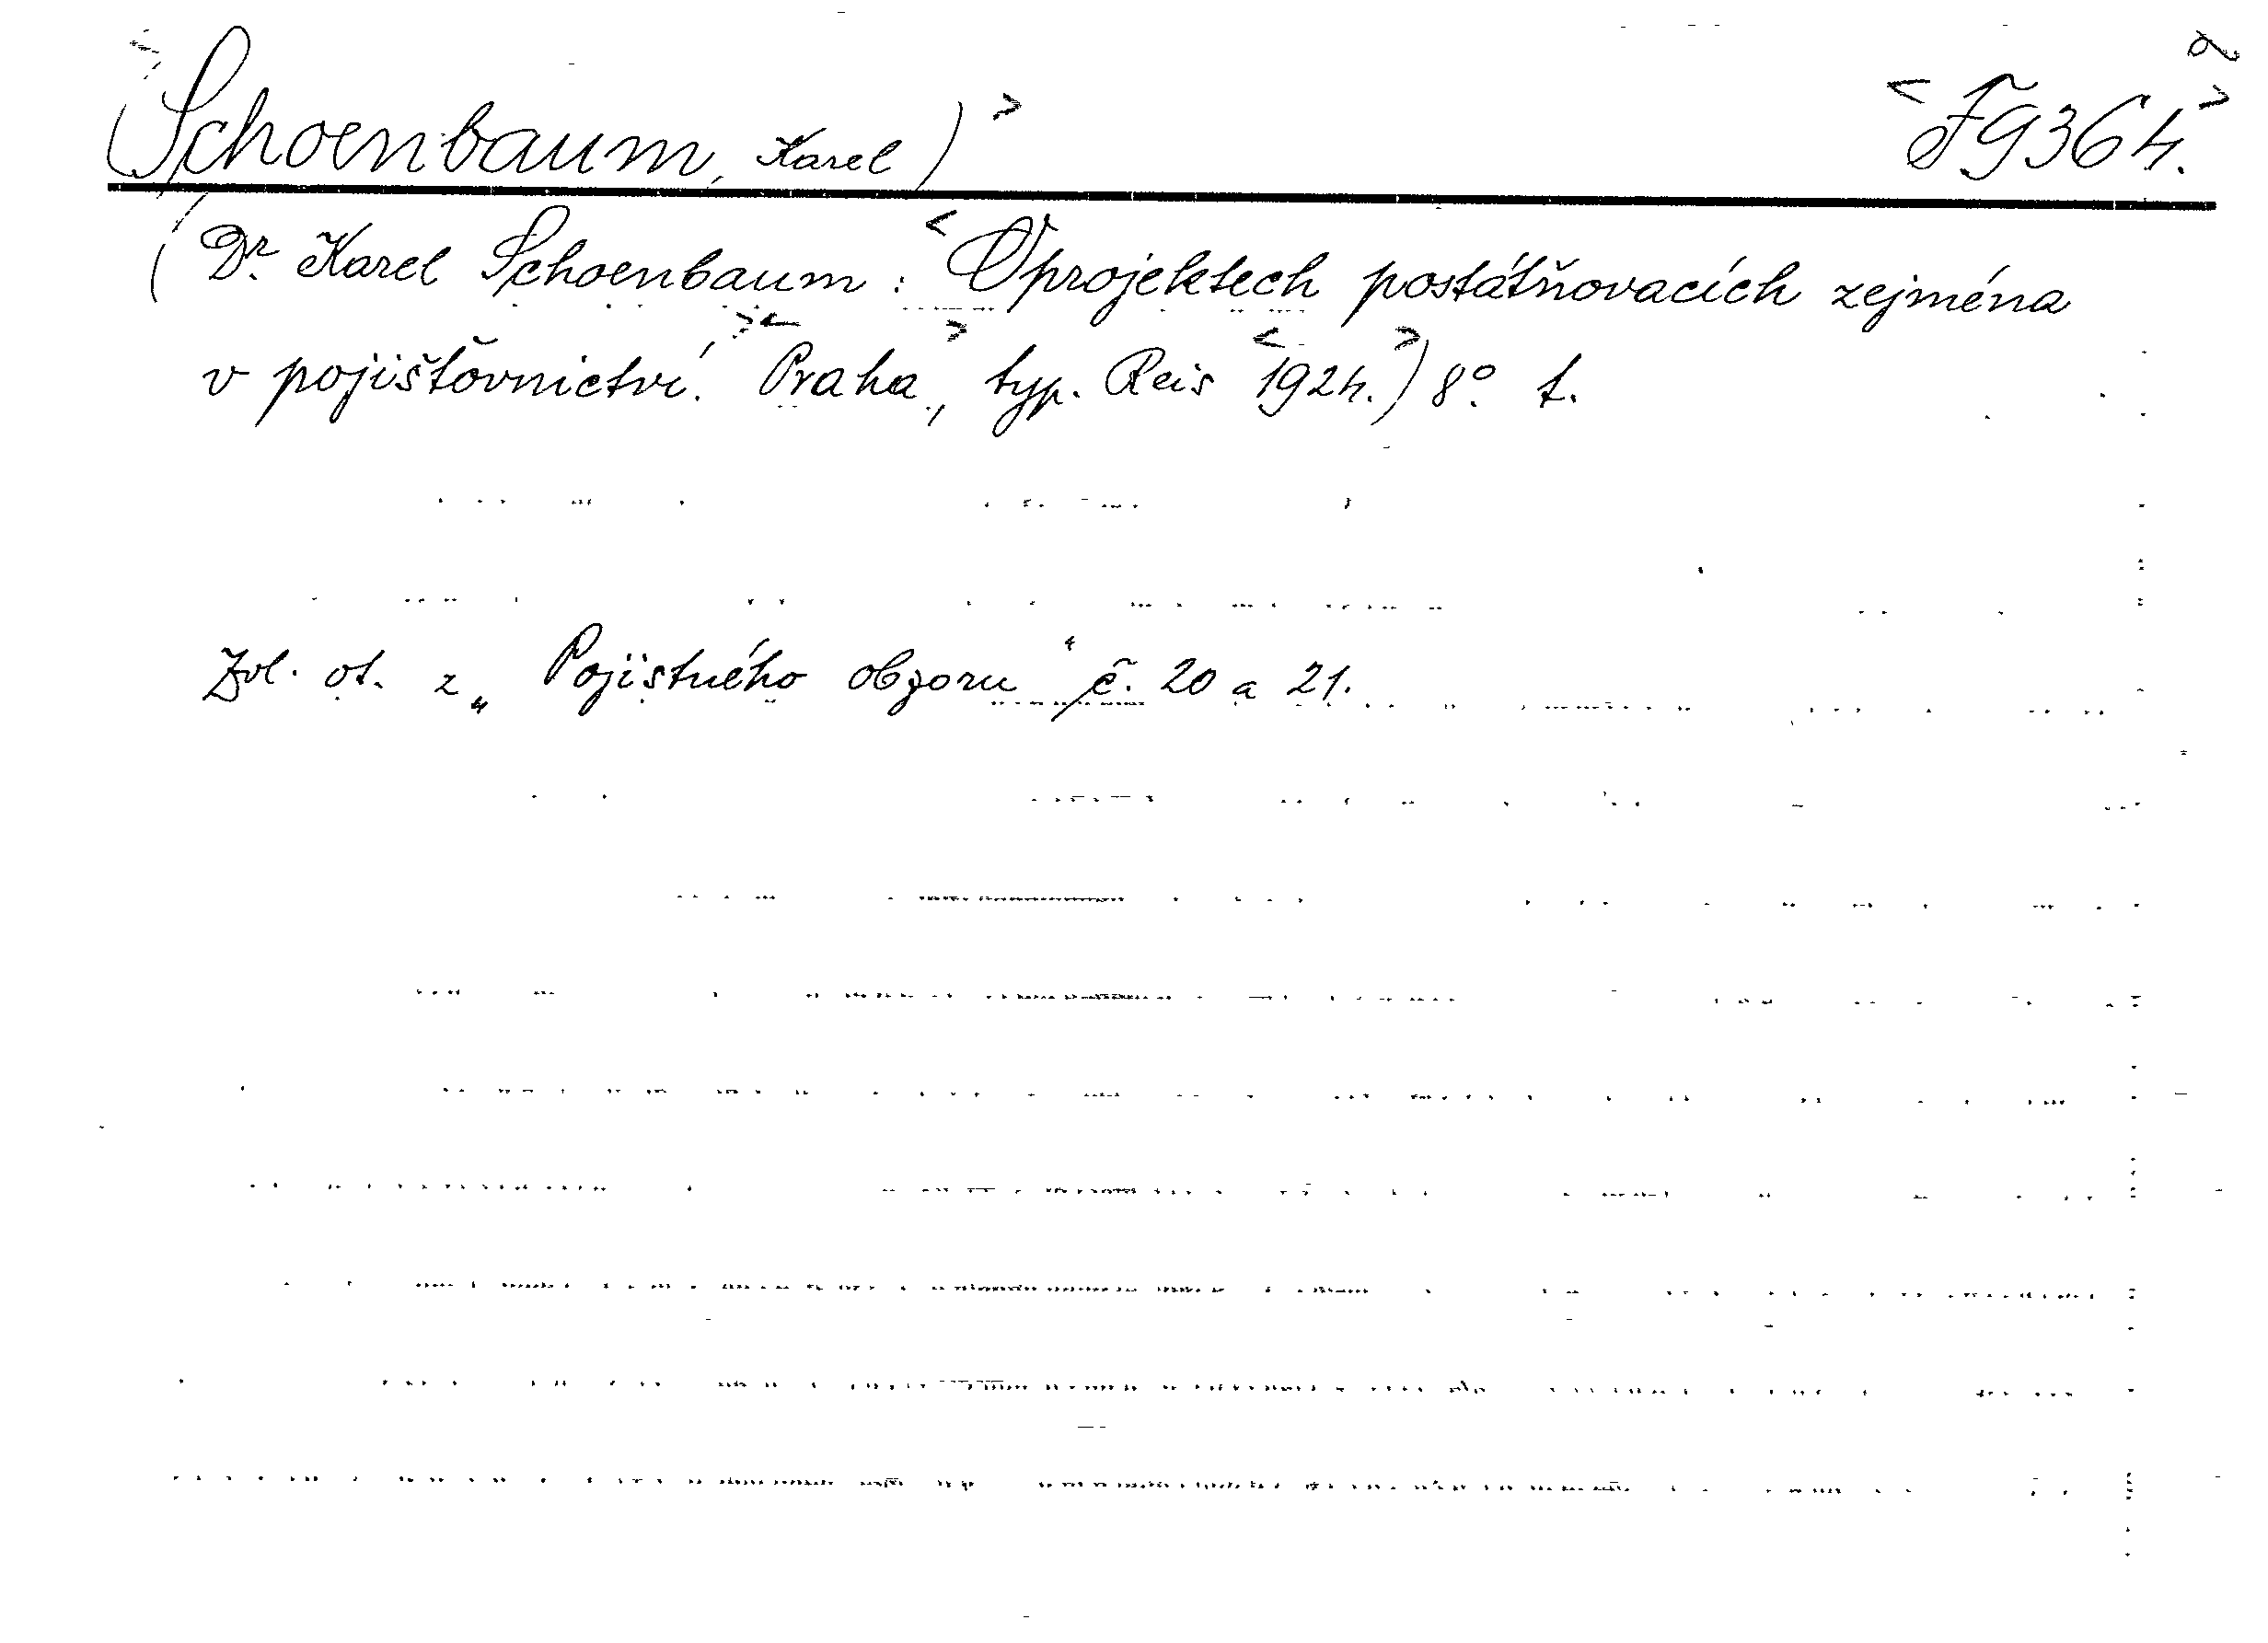 (Schoenbaum, Karel)> <F9364.>
(Dr. Karel Schoenbaum: <O projektech postátňovacích zejména
v pojišťovnictví.>< Praha,> typ. Reis <1924.>) 8°. f.
Zvl. ot. z „Pojistného obzoru“ č. 20 a 21.